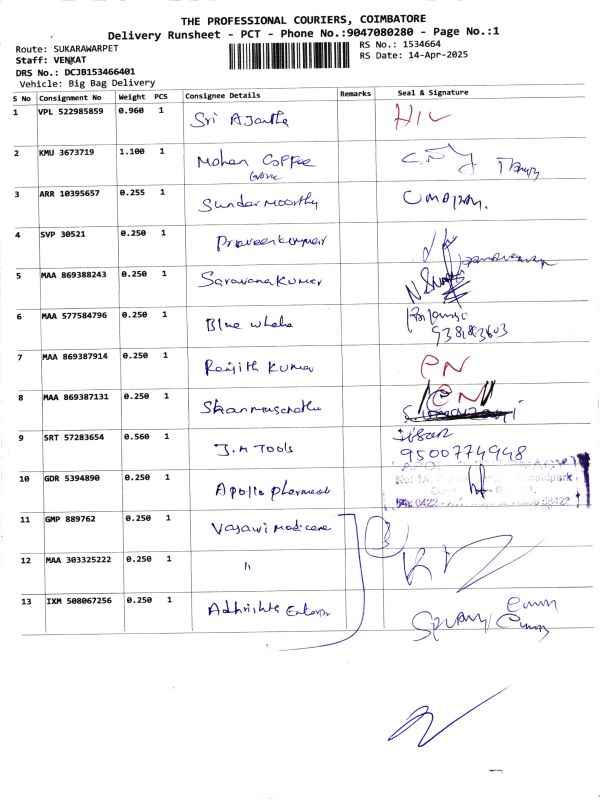 THE PROFESSIONAL COURIERS, COIMBATORE
Delivery Runsheet - PCT - Phone No.:9047080280 - Page No.:1
Route: SUKARAWARPET
RS No.: 1534664
Staff: VENKAT
RS Date: 14-Apr-2025
DRS No.: DCJB153466401
Vehicle: Big Bag Delivery
S No Consignment No Weight PCS Consignee Details Remarks Seal & Signature
1 VPL 522985859 0.960 1 Sri Ajantha
2 KMU 3673719 1.100 1 Mohan Coffee
3 ARR 10395657 0.255 1 Sundar Moorthy
4 SVP 30521 0.250 1 Praveenkumar
5 MAA 869388243 0.250 1 Saravana Kumar
6 MAA 577584796 0.250 1 Blue whale
7 MAA 869387914 0.250 1 Ranjith Kumar PN
8 MAA 869387131 0.250 1 PN
9 SRT 57283654 0.560 1 J.M Tools
9500774948
10 GDR 5394890 0.250 1 Apollo pharmach
11 GMP 889762 0.250 1 Vasavi Medicare 3
12 MAA 303325222 0.250 1 "
13 IXM 508067256 0.250 1